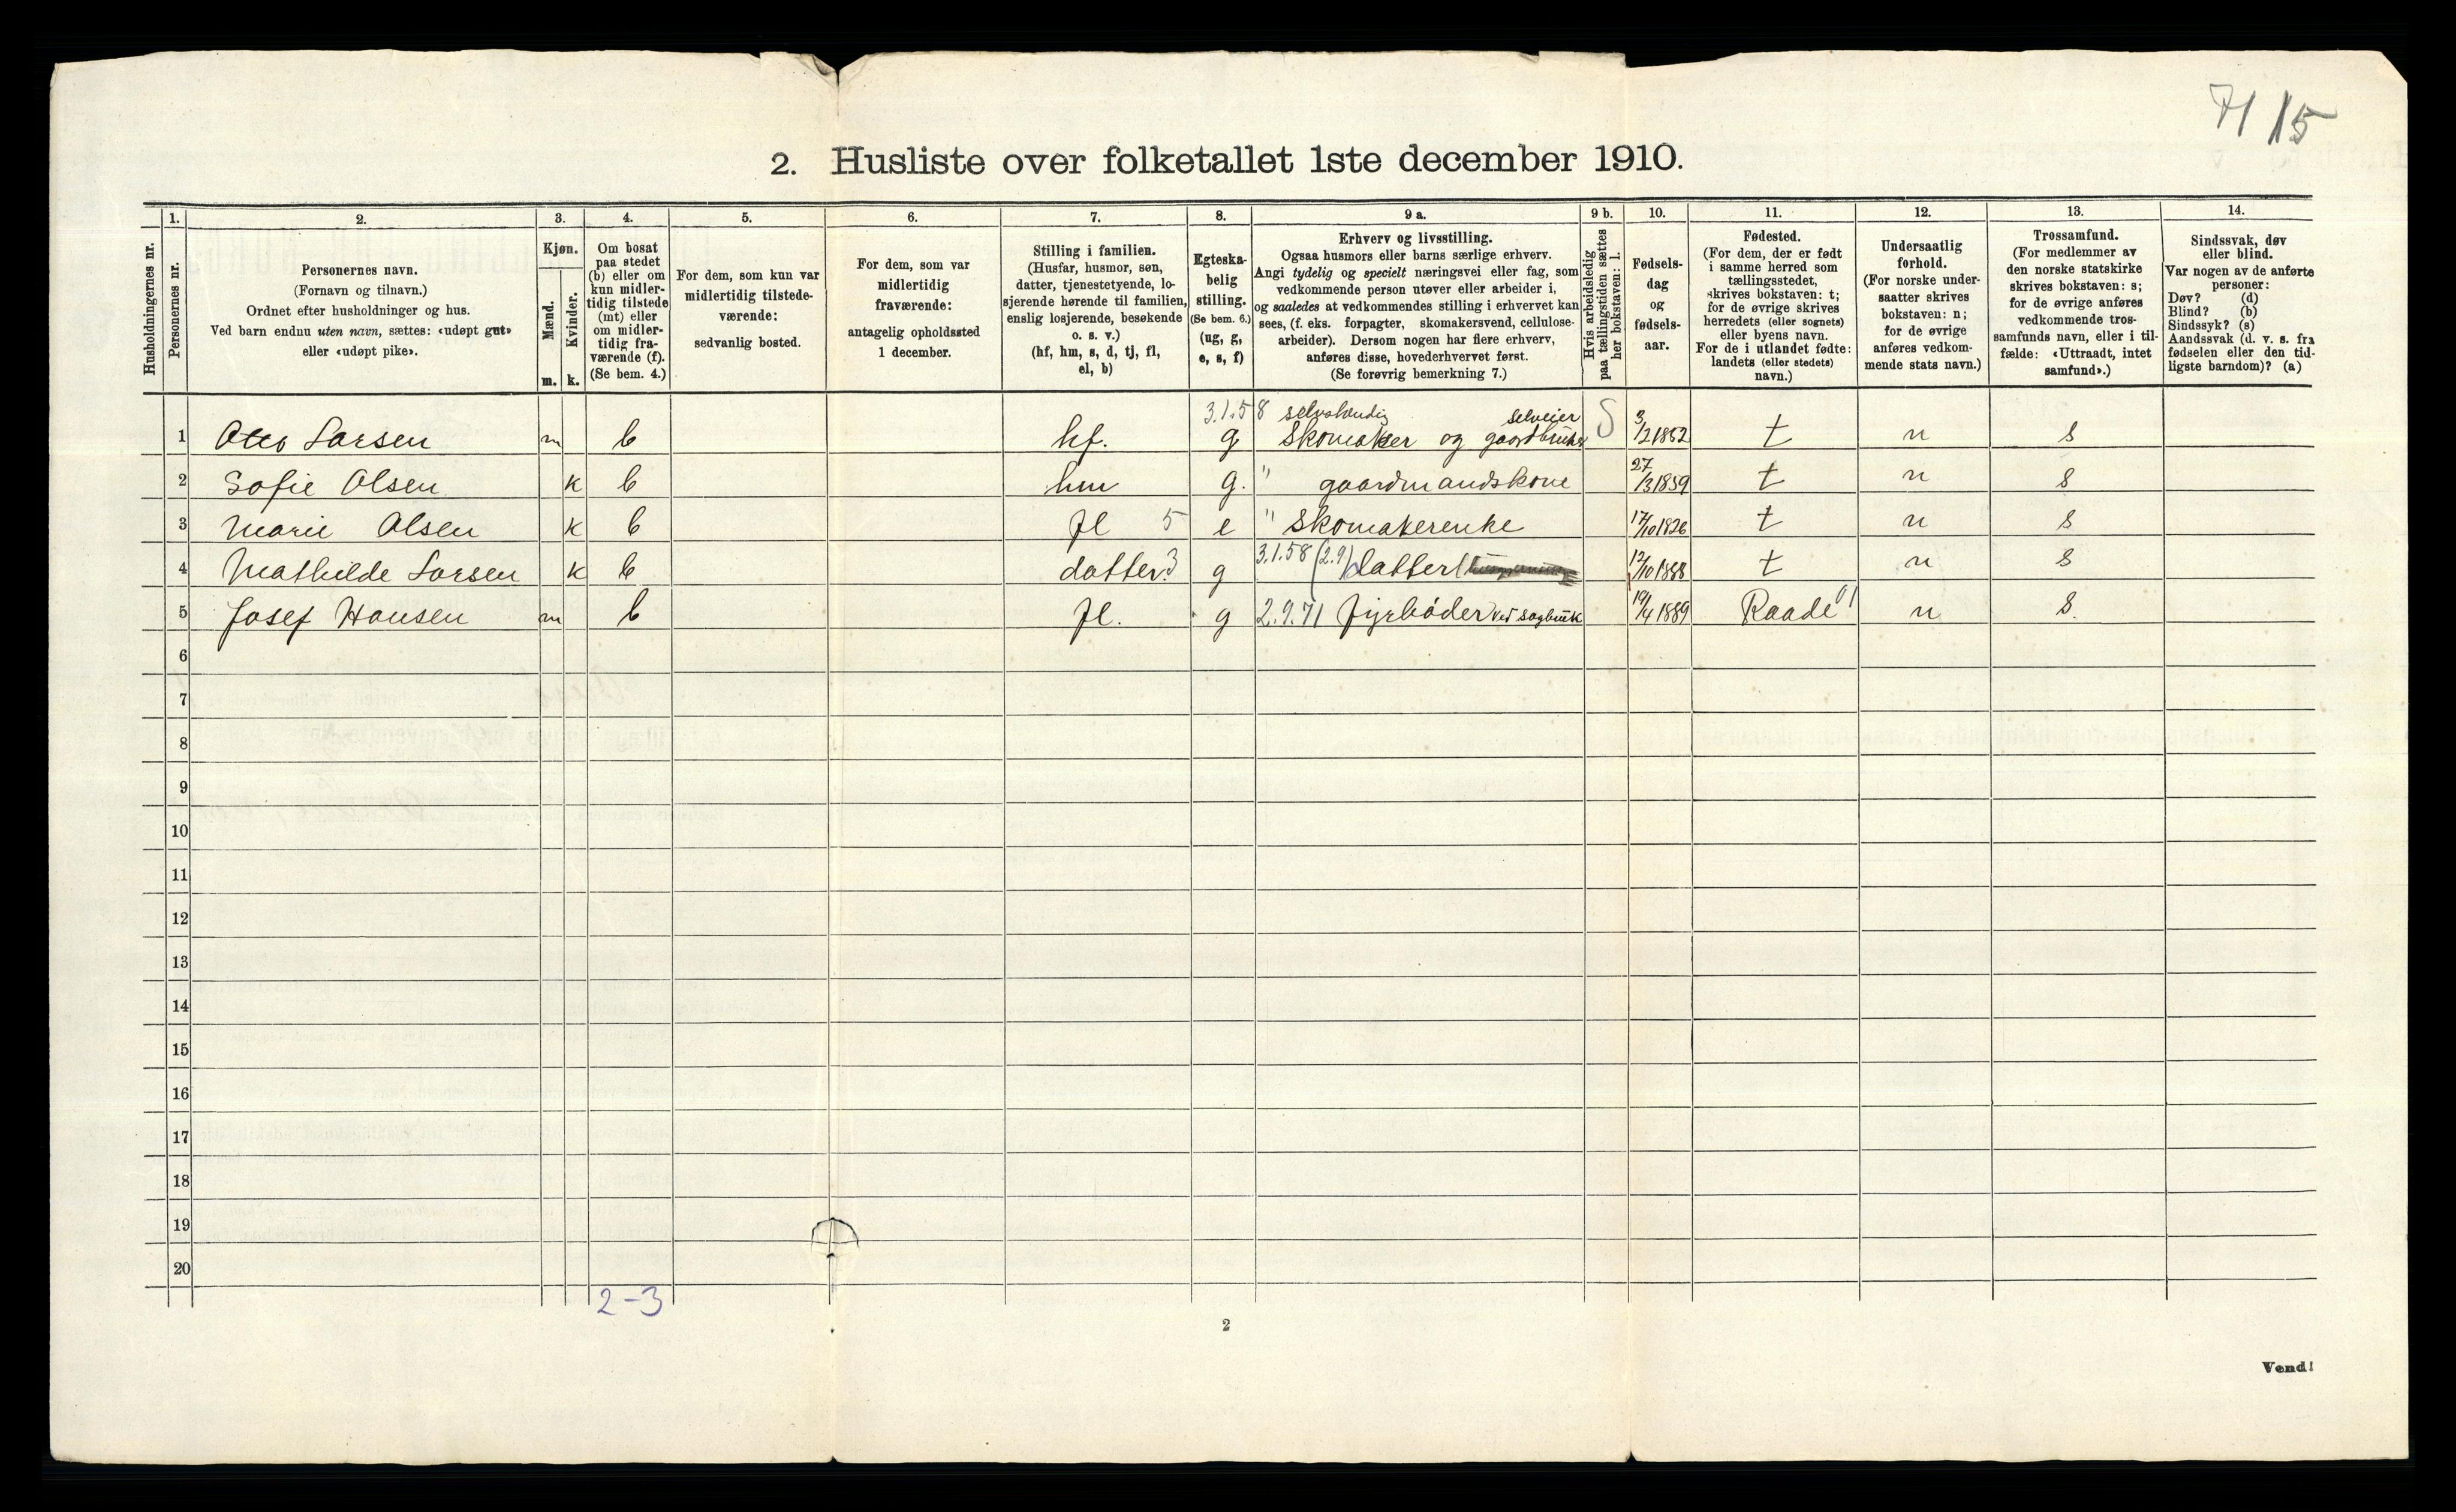 71 15
2. Husliste over folketallet 1ste december 1910.
Husholdningernes nr.
1.
Personernes nr.
2.
Personernes navn.
(Fornavn og tilnavn.)
Ordnet efter husholdninger og hus.
Ved barn endnu uten navn, sættes: «udøpt gut»
eller «udøpt pike».
3.
Kjøn.
Mænd.
m.
Kvinder.
k.
4.
Om bosat
paa stedet
(b) eller om
kun midler-
tidig tilstede
(mt) eller
om midler-
tidig fra-
værende (f).
(Se bem. 4.)
5.
For dem, som kun var
midlertidig tilstede-
værende:
sedvanlig bosted.
6.
For dem, som var
midlertidig
fraværende:
antagelig opholdssted
1 december.
7.
Stilling i familien.
(Husfar, husmor, søn,
datter, tjenestetyende, lo-
sjerende hørende til familien,
enslig losjerende, besøkende
o. s. v.)
(hf, hm, s, d, tj, fl,
el, b)
8.
Egteska-
belig
stilling.
(Se bem. 6.)
(ug, g,
e, s, f)
9 a.
Erhverv og livsstilling.
Ogsaa husmors eller barns særlige erhverv.
Angi tydelig og specielt næringsvei eller fag, som
vedkommende person utøver eller arbeider i,
og saaledes at vedkommendes stilling i erhvervet kan
sees, (f. eks. forpagter, skomakersvend, cellulose-
arbeider). Dersom nogen har flere erhverv,
anføres disse, hovederhvervet først.
(Se forøvrig bemerkning 7.)
9 b.
Hvis arbeidsledig
paa tællingstiden sættes
her bokstaven: l.
10.
Fødsels-
dag
og
fødsels-
aar.
11.
Fødested.
(For dem, der er født
i samme herred som
tællingsstedet,
skrives bokstaven: t;
for de øvrige skrives
herredets (eller sognets)
eller byens navn.
For de i utlandet fødte:
landets (eller stedets)
navn.)
12.
Undersaatlig
forhold.
(For norske under-
saatter skrives
bokstaven: n;
for de øvrige
anføres vedkom-
mende stats navn.)
13.
Trossamfund.
(For medlemmer av
den norske statskirke
skrives bokstaven: s;
for de øvrige anføres
vedkommende tros-
samfunds navn, eller i til-
fælde: «Uttraadt, intet
samfund».)
14.
Sindssvak, døv
eller blind.
Var nogen av de anførte
personer:
Døv? (d)
Blind? (b)
Sindssyk? (s)
Aandssvak (d. v. s. fra
fødselen eller den tid-
ligste barndom)? (a)
3.1.58 selvstændig selveier
1 Otto Larsen m b hf. g Skomaker og gaardbruker S 3/2 1852 t n s
2 Sofie Olsen k b hm g. " gaardmandskone 27/3 1859 t n s
3 Marie Olsen k b fl 5 e " Skomakerenke 17/10 1826 t n s
4 Mathilde Larsen k b datter 3 g 3.1.58 (2.9) datter 12/10 1888 t n s
5 Josef Hansen m b fl. g 2.9.71 Fyrbøder ved sagbruk 19/4 1889 Raade 01 n s.
6
7
8
9
10
11
12
13
14
15
16
17
18
19
20
2-3
2
Vend!